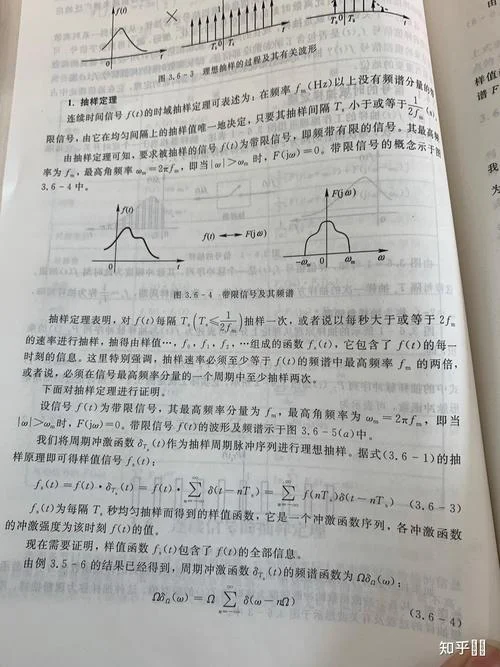 f(t)
t
Tₛ 0 Tₛ
t
Tₛ 0 Tₛ
图 3.6-3 理想抽样的过程及其有关波形
1. 抽样定理
连续时间信号 f(t)的时域抽样定理可表述为：在频率 fₘ(Hz)以上没有频谱分量的带
限信号，由它在均匀间隔上的抽样值唯一地决定，只要其抽样间隔 Tₛ 小于或等于 1/(2fₘ) (s)。
由抽样定理可知，要求被抽样的信号 f(t)为带限信号，即频带有限的信号。其最高频
率为 fₘ，最高角频率 ωₘ=2πfₘ，即当|ω|>ωₘ 时，F(jω)=0。带限信号的概念示于图
3.6-4 中。
f(t)
t
f(t) ↔ F(jω)
F(jω)
-ωₘ 0 ωₘ ω
图 3.6-4 带限信号及其频谱
抽样定理表明，对 f(t)每隔 Tₛ(Tₛ≤1/(2fₘ))抽样一次，或者说以每秒大于或等于 2fₘ
的速率进行抽样，抽得由样值…，f₀，f₁，f₂，…组成的函数 fₛ(t)，它包含了 f(t)的每一
时刻的信息。这里特别强调，抽样速率必须至少等于 f(t)的频谱中最高频率 fₘ 的两倍，
或者说，必须在信号最高频率分量的一个周期中至少抽样两次。
下面对抽样定理进行证明。
设信号 f(t)为带限信号，其最高频率分量为 fₘ，最高角频率为 ωₘ=2πfₘ，即当
|ω|>ωₘ时，F(jω)=0。带限信号 f(t)的波形及频谱示于图 3.6-5(a)中。
我们将周期冲激函数 δ_Tₛ(t)作为抽样周期脉冲序列进行理想抽样。据式(3.6-1)的抽
样原理即可得样值信号 fₛ(t)：
fₛ(t)=f(t)·δ_Tₛ(t)=f(t)·∑_{n=-∞}^{∞} δ(t-nTₛ)=∑_{n=-∞}^{∞} f(nTₛ)δ(t-nTₛ) (3.6-3)
fₛ(t)为每隔 Tₛ 秒均匀抽样而得到的样值函数，它是一个冲激函数序列，各冲激函数
的冲激强度为该时刻 f(t)的值。
现在需要证明，样值函数 fₛ(t)包含了 f(t)的全部信息。
由例 3.5-6 的结果已经得到，周期冲激函数 δ_Tₛ(t)的频谱函数为 Ωδ_Ω(ω)：
Ωδ_Ω(ω)=Ω ∑_{n=-∞}^{∞} δ(ω-nΩ) (3.6-4)
知乎